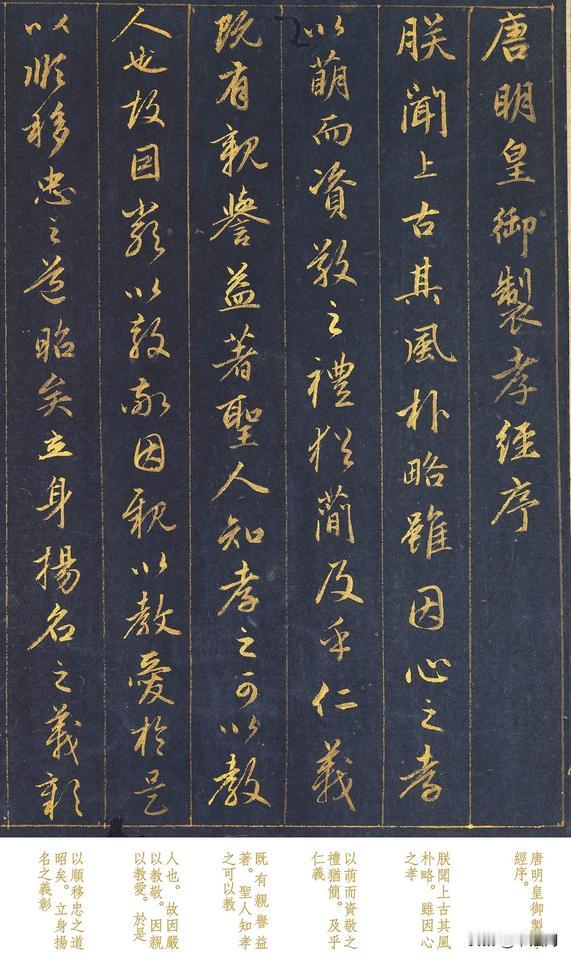 唐明皇御製孝經序
朕聞上古其風朴略雖因心之孝
以萌而資敬之禮猶簡及乎仁義
既有親譽益著聖人知孝之可以教
人也故因嚴以教敬因親以教愛於是
以順移忠之道昭矣立身揚名之義彰
唐明皇御製
經序。
朕聞上古其風
朴略。雖因心
之孝
以萌而資敬之
禮猶簡。及乎
仁義
既有親譽益
著。聖人知孝
之可以教
人也。故因嚴
以教敬。因親
以教愛。於是
以順移忠之道
昭矣。立身揚
名之義彰